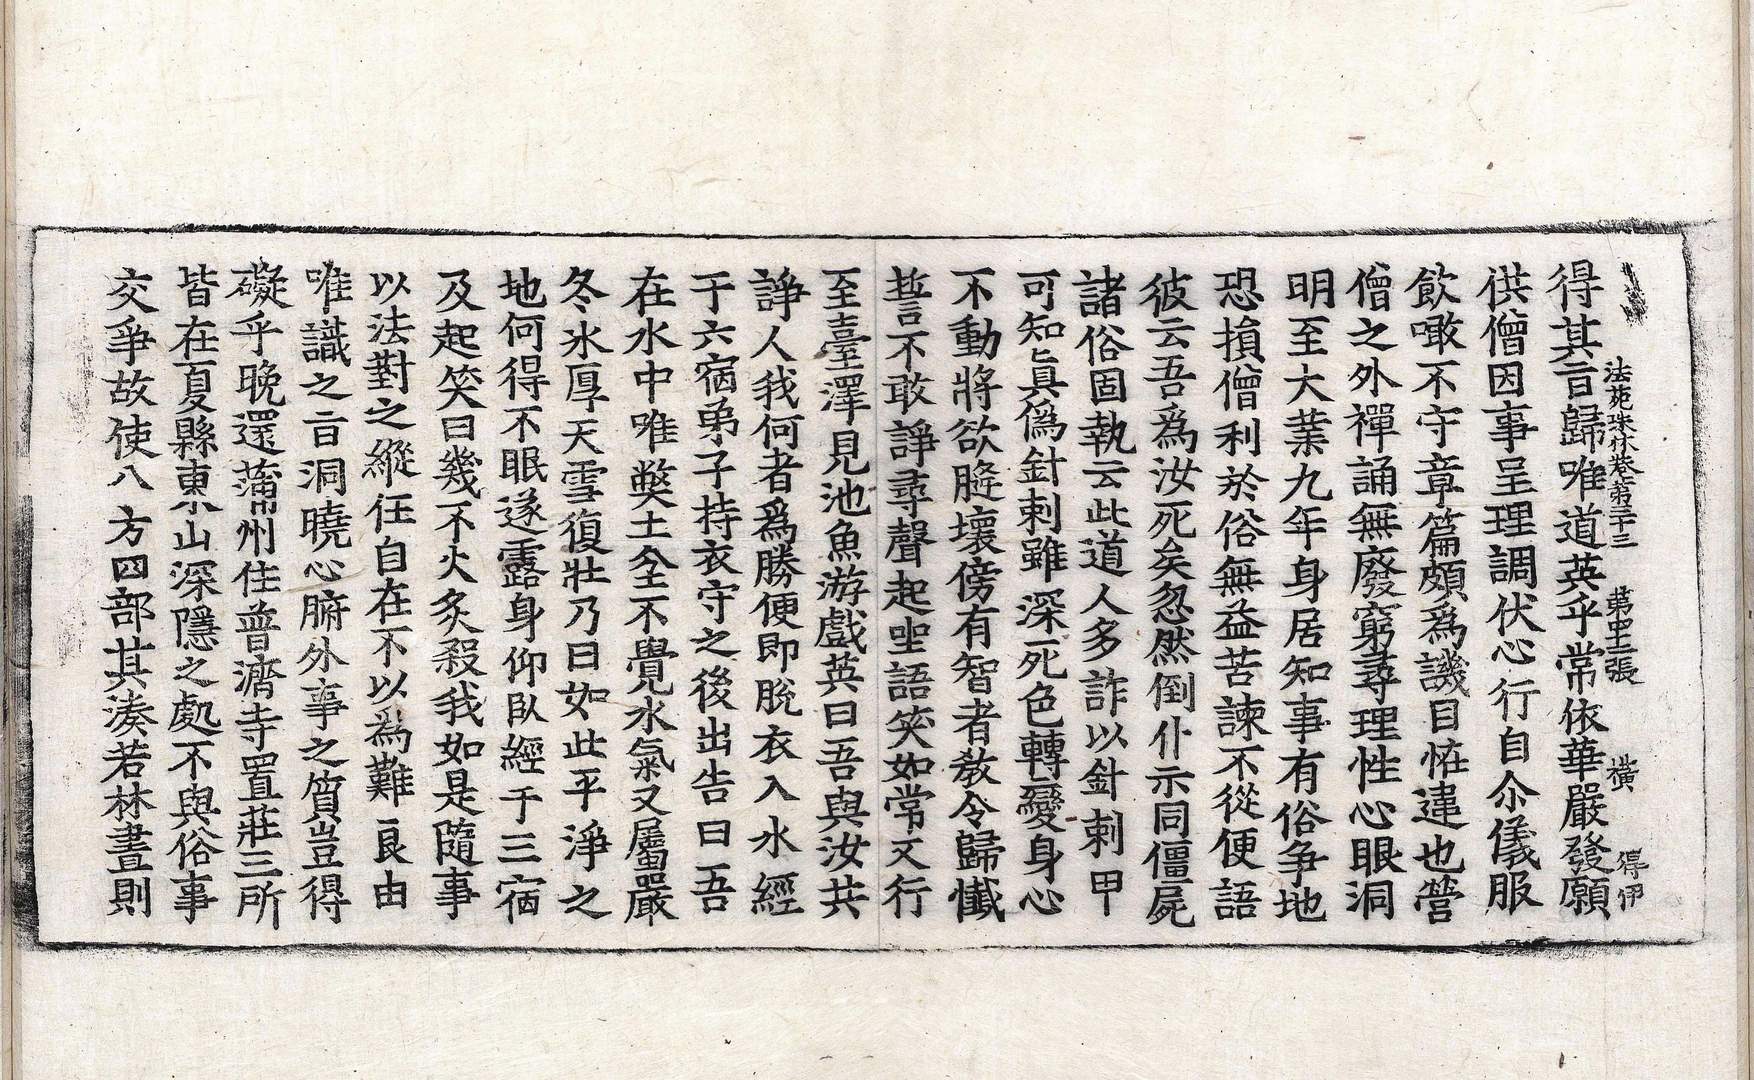 法苑珠林卷第三十三　第四十二張　橫　得伊
得其旨歸唯道英乎常依華嚴發願
供僧因事呈理調伏心行自尒儀服
飲噉不守章篇頗爲譏目恠違也營
僧之外禪誦無廢窮尋理性心眼洞
明至大業九年身居知事有俗争地
恐損僧利於俗無益苦諫不從便語
彼云吾爲汝死矣忽然倒仆示同僵屍
諸俗固執云此道人多詐以針刺甲
可知眞僞針刺雖深死色轉變身心
不動將欲膖壞傍有智者教令歸懺
誓不敢諍尋聲起坐語笑如常又行
至臺澤見池魚游戲英曰吾與汝共
諍人我何者爲勝便即脫衣入水經
于六宿弟子持衣守之後出告曰吾
在水中唯弊土坌不覺水氣又屬嚴
冬氷厚天雪復壯乃曰如此平淨之
地何得不眠遂露身仰臥經于三宿
及起笑曰幾不火炙殺我如是隨事
以法對之縱任自在不以爲難良由
唯識之旨洞曉心腑外事之質豈得
礙乎晚還蒲州住普濟寺置莊三所
皆在夏縣東山深隱之處不與俗事
交爭故使八方四部其湊若林晝則